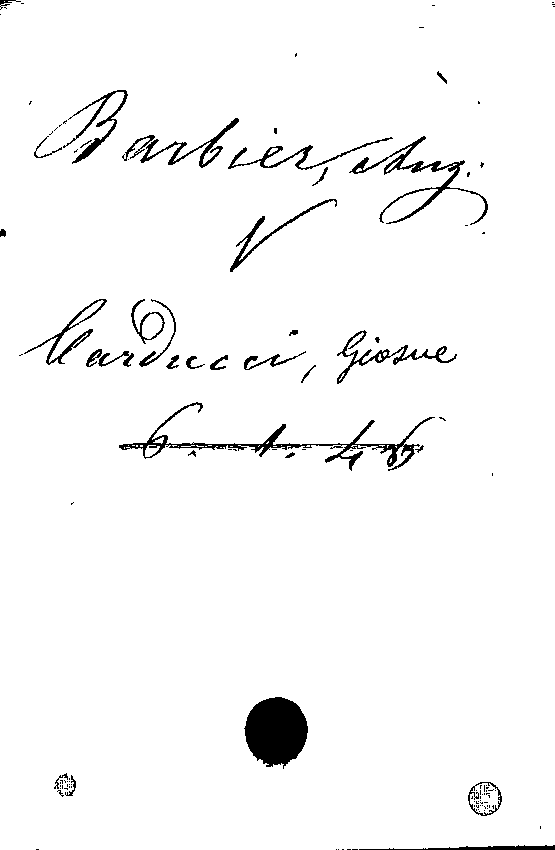 Barbier, Aug.:
V
Carducci, Giosue
6. 1. 46